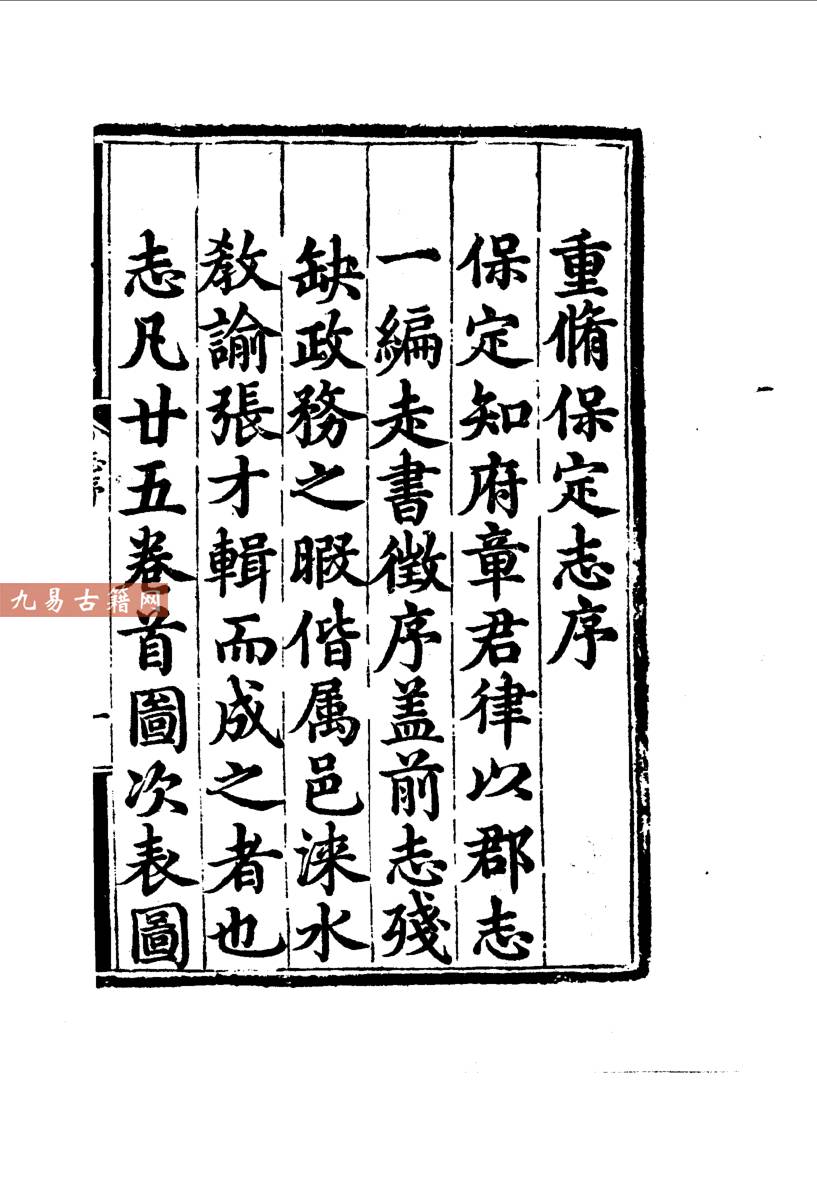 重脩保定志序
保定知府章君律以郡志
一編走書徵序盖前志殘
缺政務之暇偕属邑涞水
教諭張才輯而成之者也
志凡廿五卷首圖次表圖
九易古籍网